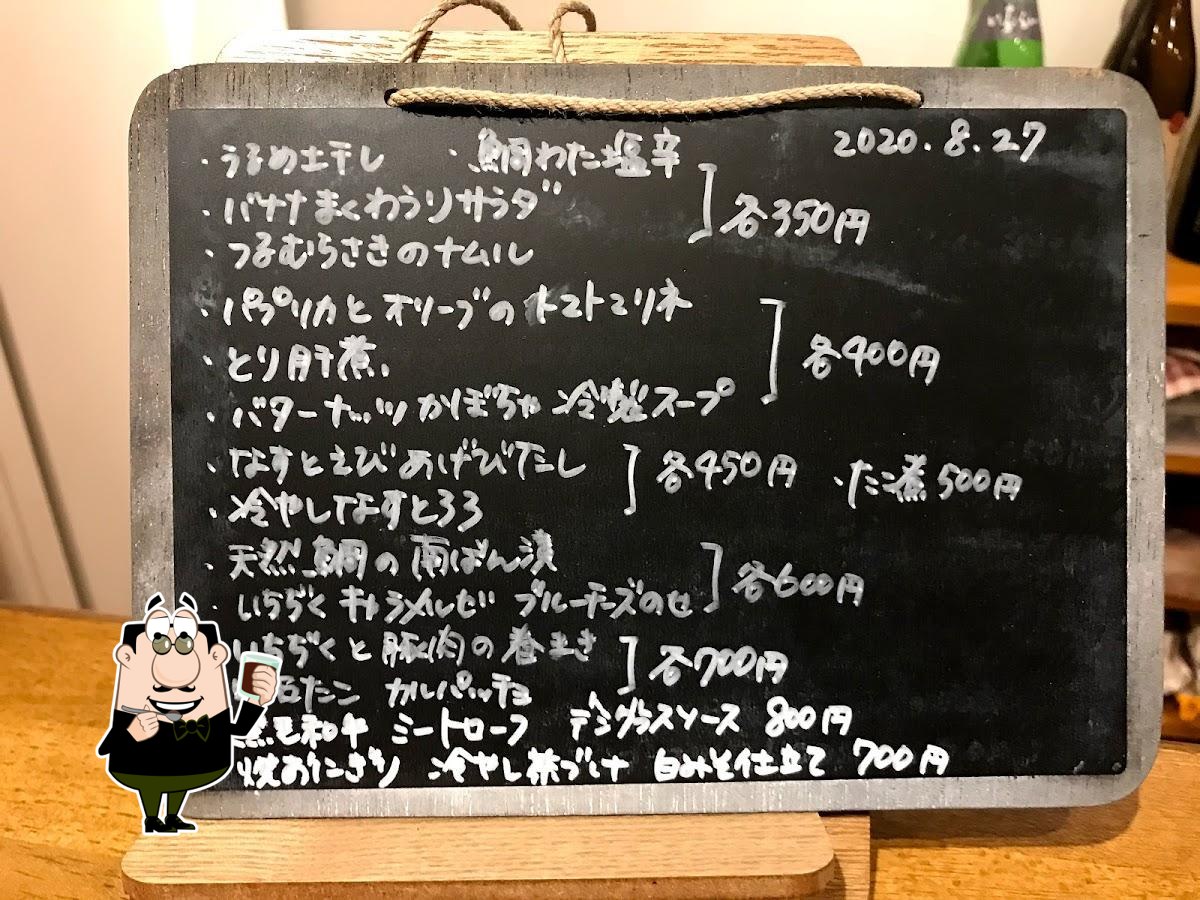 ・うるめ土干し ・鯛わた塩辛 2020.8.27
・バナナまくわうりサラダ 各350円
・つるむらさきのナムル
・パプリカとオリーブのトマトマリネ
・とり肝煮。 各400円
・バターナッツかぼちゃ冷製スープ
・なすとえびあげびたし 各450円 ・たこ煮500円
・冷やしなすとろろ
・天然鯛の南ばん漬 各600円
・いちぢくキャラメルゼ ブルーチーズのせ
いちぢくと豚肉の巻き 各700円
たン カルパッチョ
黒毛和牛 ミートローフ デミグラスソース 800円
焼おにぎり 冷やし茶づけ 白みそ仕立て 700円